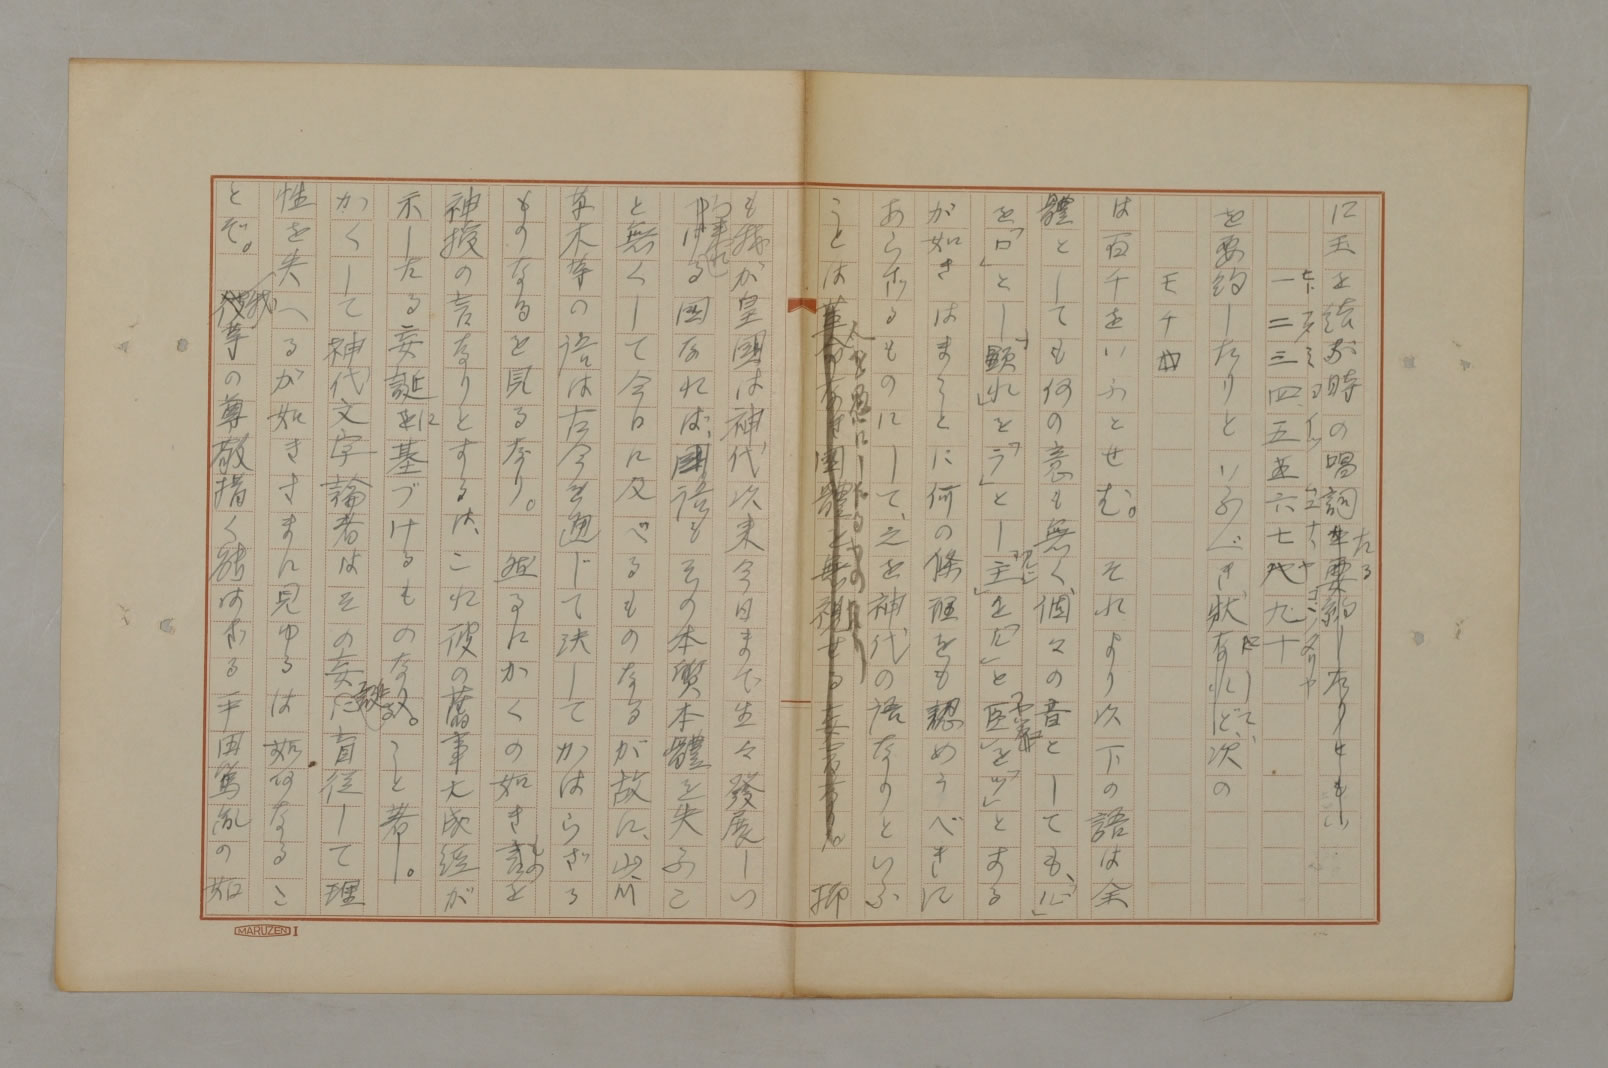 に玉を結ぶ時の唱詞を要約したりとも
一二三四五六七八九十
を要約したりといふべき状なれど、次の
モチ
は百千をいふとせむ。それより以下の語は全
體としても何の意も無く個々の音としても、「心」
を「ロ」とし「顯れ」を「ラ」とし「主」を「ヌ」と「医」を「ツ」とする
が如きはまことに何の條理をも認めうべきに
あらざるものにして、之を神代の語なりといふ
ことは革命なき國體を無視せる妄言なり。抑
も我が皇國は神代以来今日まで生々發展しつ
つ來れる国なれば、國語もその本質本體を失ふこ
と無くして今日に及べるものなるが故に、山川
草木等の語は古今を通じて決してかはらざる
ものなるを見るなり。然るにかくの如きものを
神授の言なりとするは、これ彼の舊事大成經が
示したる妄誕に基づけるものなること著し。
かくして神代文字論者はその妄誕に盲従して理
性を失へるが如きさまに見ゆるは如何なるこ
とぞ。我が等の尊敬措く能はざる平田篤胤の如
MARUZEN I